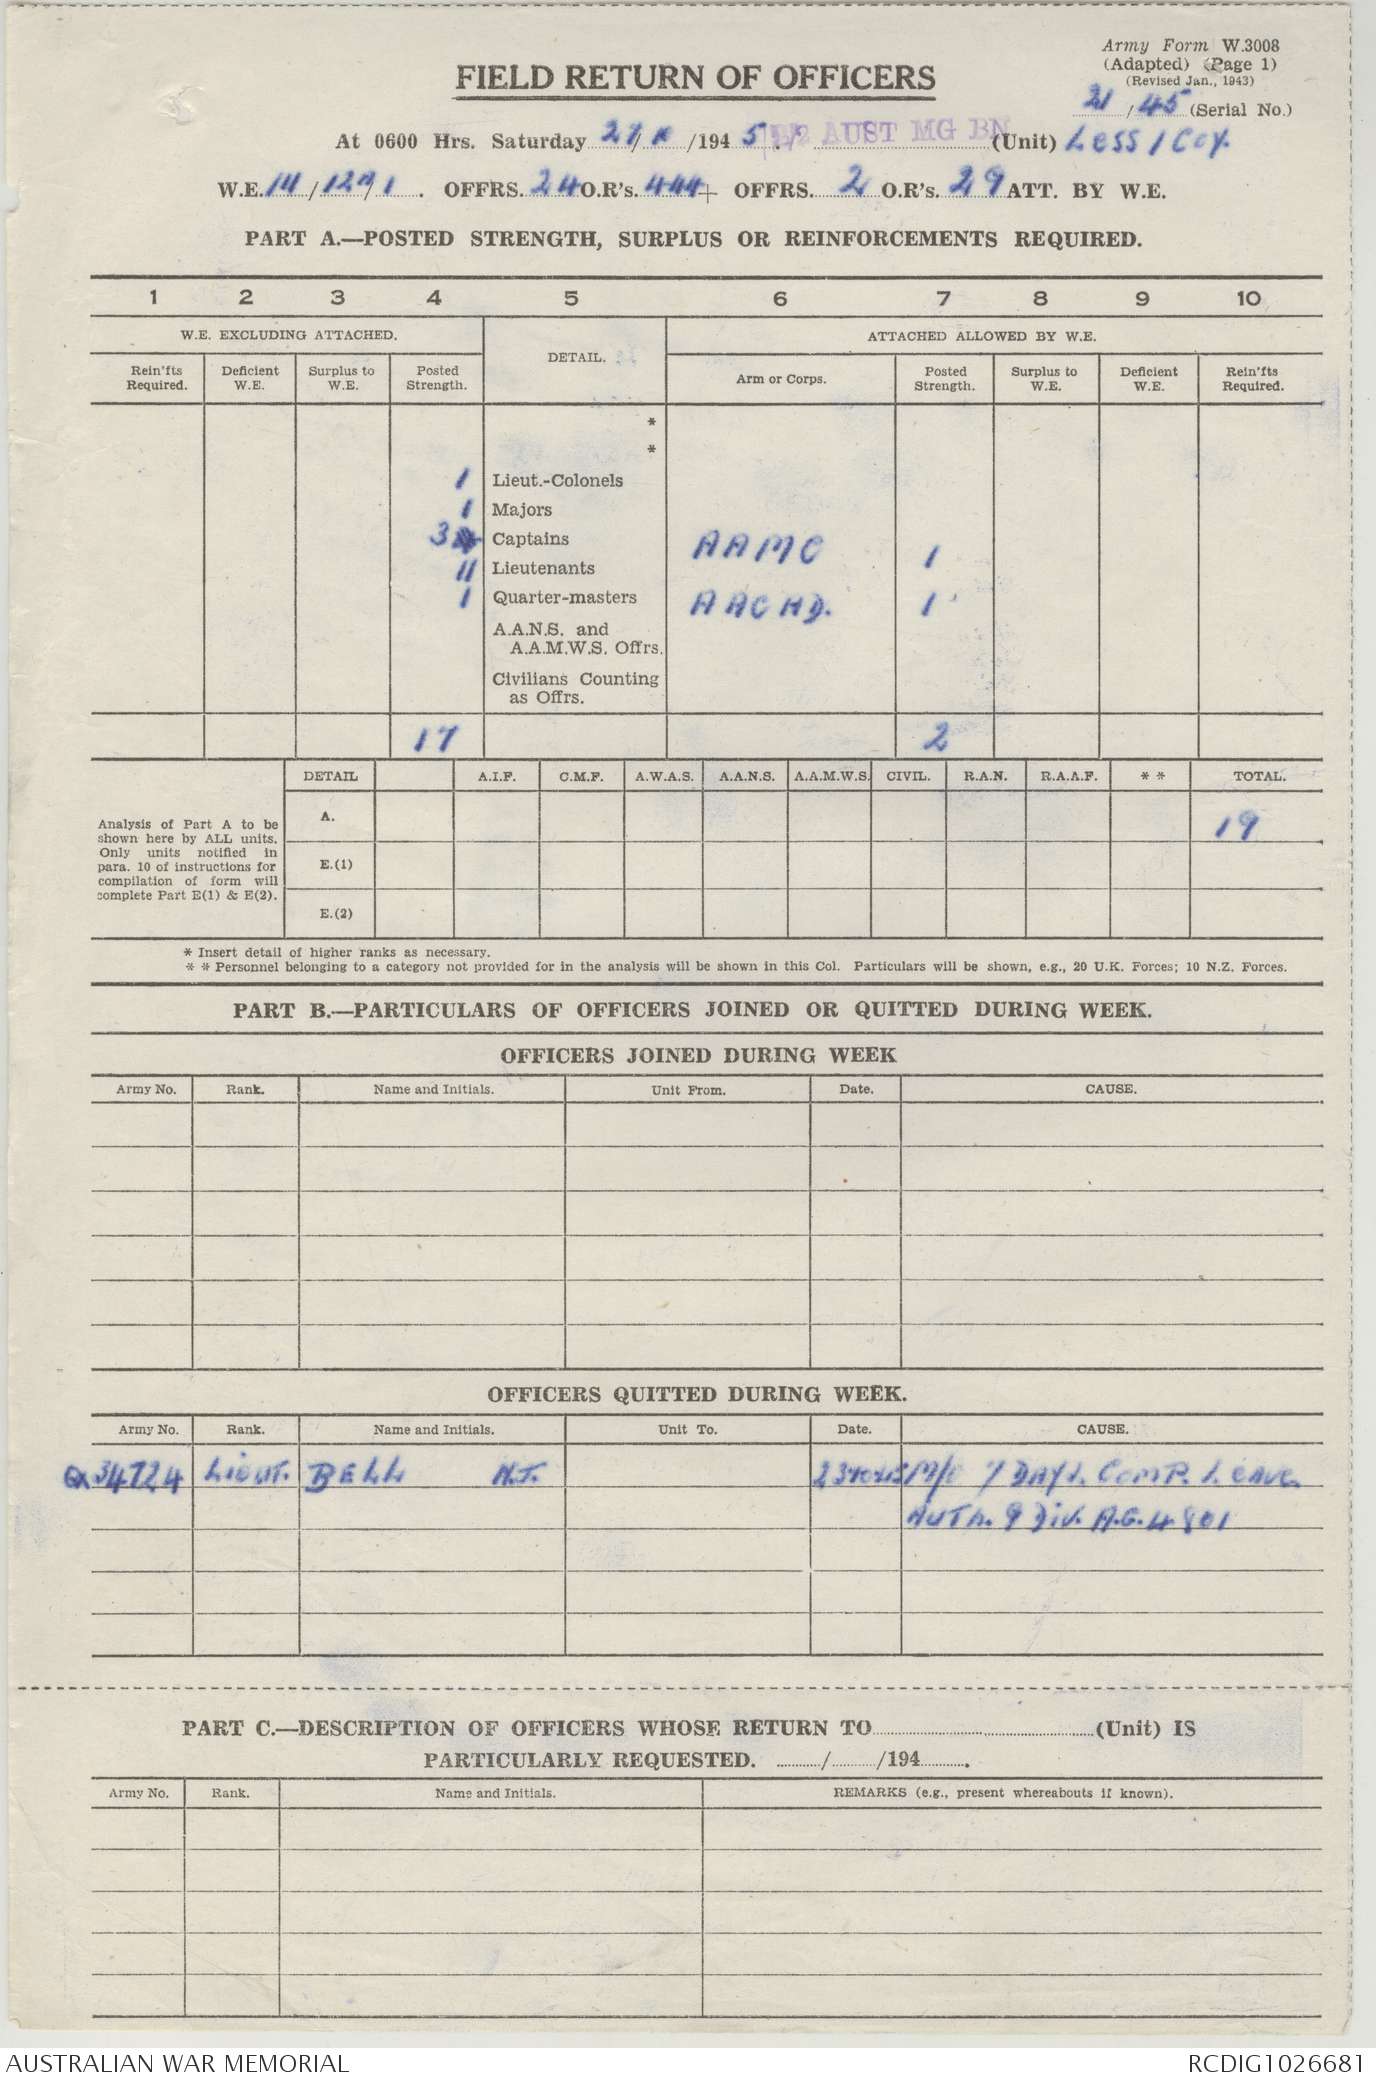 Army Form W.3008
(Adapted) (Page 1)
(Revised Jan., 1943)
21 / 45 (Serial No.)
FIELD RETURN OF OFFICERS
At 0600 Hrs. Saturday 27/ /194 5. 2/2 AUST MG BN (Unit) LESS 1 COY.
W.E. / / 1. OFFRS. 24 O.R's. 444 + OFFRS. 2 O.R's. 29 ATT. BY W.E.
PART A.—POSTED STRENGTH, SURPLUS OR REINFORCEMENTS REQUIRED.
1 2 3 4 5 6 7 8 9 10
W.E. EXCLUDING ATTACHED. DETAIL. ATTACHED ALLOWED BY W.E.
Rein'fts Required. Deficient W.E. Surplus to W.E. Posted Strength. Arm or Corps. Posted Strength. Surplus to W.E. Deficient W.E. Rein'fts Required.
*
*
1 Lieut.-Colonels
1 Majors
3 Captains AAMC 1
11 Lieutenants
1 Quarter-masters AACHD. 1
A.A.N.S. and
A.A.M.W.S. Offrs.
Civilians Counting
as Offrs.
17 2
DETAIL A.I.F. C.M.F. A.W.A.S. A.A.N.S. A.A.M.W.S. CIVIL. R.A.N. R.A.A.F. * * TOTAL.
Analysis of Part A to be
shown here by ALL units.
Only units notified in
para. 10 of instructions for
compilation of form will
complete Part E(1) & E(2).
A. 19
E.(1)
E.(2)
* Insert detail of higher ranks as necessary.
* * Personnel belonging to a category not provided for in the analysis will be shown in this Col. Particulars will be shown, e.g., 20 U.K. Forces; 10 N.Z. Forces.
PART B.—PARTICULARS OF OFFICERS JOINED OR QUITTED DURING WEEK.
OFFICERS JOINED DURING WEEK
Army No. Rank. Name and Initials. Unit From. Date. CAUSE.
OFFICERS QUITTED DURING WEEK.
Army No. Rank. Name and Initials. Unit To. Date. CAUSE.
QX34724 LIEUT. BELL N.J. M/O 7 DAYS. COMP. LEAVE
AUTH. 9 DIV. A.G. 4801
PART C.—DESCRIPTION OF OFFICERS WHOSE RETURN TO (Unit) IS
PARTICULARLY REQUESTED. / /194 .
Army No. Rank. Name and Initials. REMARKS (e.g., present whereabouts if known).
AUSTRALIAN WAR MEMORIAL RCDIG1026681